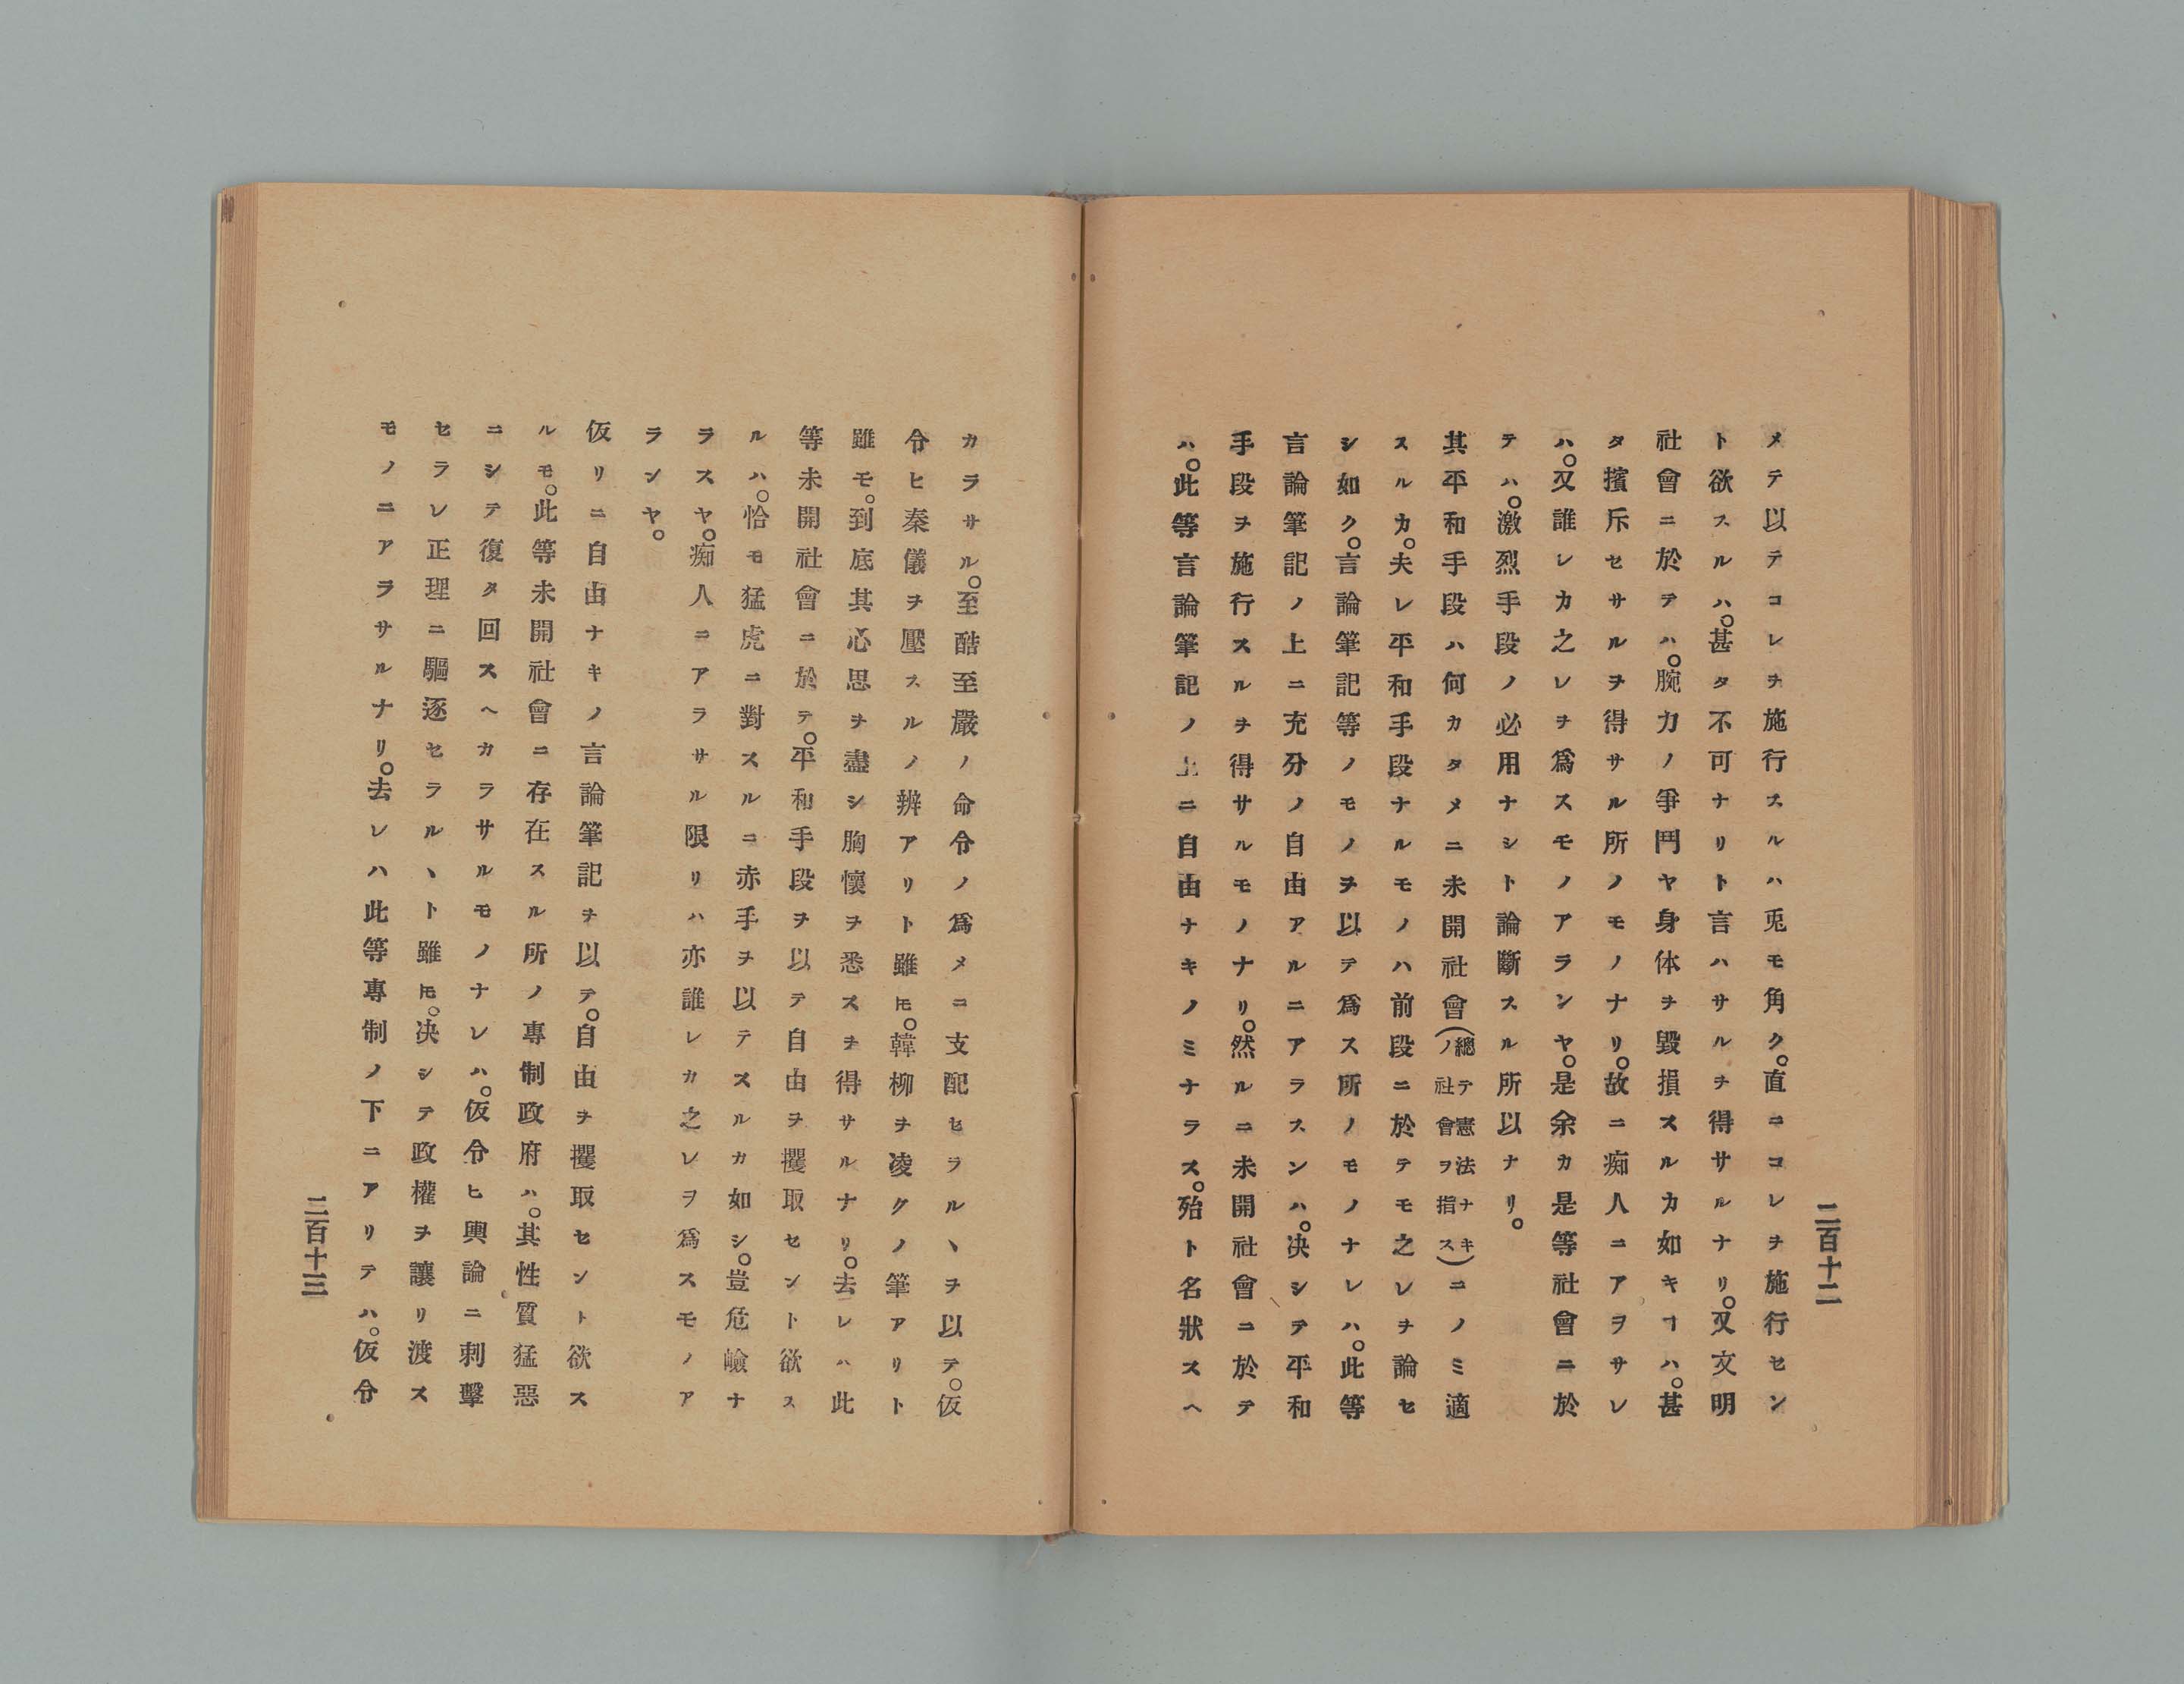 二百十二
メテ以テコレヲ施行スルハ兎モ角ク。直ニコレヲ施行セン
ト欲スルハ。甚タ不可ナリト言ハサルヲ得サルナリ。又文明
社會ニ於テハ。腕力ノ爭鬥ヤ身体ヲ毀損スルカ如キヿハ。甚
タ擯斥セサルヲ得サル所ノモノナリ。故ニ痴人ニアヲサレ
ハ。又誰レカ之レヲ爲スモノアランヤ。是余カ是等社會ニ於
テハ。激烈手段ノ必用ナシト論斷スル所以ナリ。
其平和手段ハ何カタメニ未開社會(總テ憲法ナキノ社會ヲ指ス)ニノミ適
スルカ。夫レ平和手段ナルモノハ前段ニ於テモ之レヲ論セ
シ如ク。言論筆記等ノモノヲ以テ爲ス所ノモノナレハ。此等
言論筆記ノ上ニ充分ノ自由アルニアラスンハ。决シテ平和
手段ヲ施行スルヲ得サルモノナリ。然ルニ未開社會ニ於テ
ハ。此等言論筆記ノ上ニ自由ナキノミナラス。殆ト名狀スヘ
カラサル。至酷至嚴ノ命令ノ爲メニ支配セラルヽヲ以テ。仮
令ヒ秦儀ヲ壓スルノ辨アリト雖𪜈。韓柳ヲ凌クノ筆アリト
雖モ。到底其心思ヲ盡シ胸懷ヲ悉スヲ得サルナリ。去レハ此
等未開社會ニ於テ。平和手段ヲ以テ自由ヲ攫取セント欲ス
ルハ。恰モ猛虎ニ對スルニ赤手ヲ以テスルカ如シ。豈危嶮ナ
ラスヤ。痴人ニアラサル限リハ亦誰レカ之レヲ爲スモノア
ランヤ。
仮リニ自由ナキノ言論筆記ヲ以テ。自由ヲ攫取セント欲ス
ルモ。此等未開社會ニ存在スル所ノ專制政府ハ。其性質猛惡
ニシテ復タ回スヘカラサルモノナレハ。仮令ヒ輿論ニ刺擊
セラレ正理ニ驅逐セラルヽト雖𪜈。决シテ政權ヲ讓リ渡ス
モノニアラサルナリ。去レハ此等專制ノ下ニアリテハ。仮令
二百十三